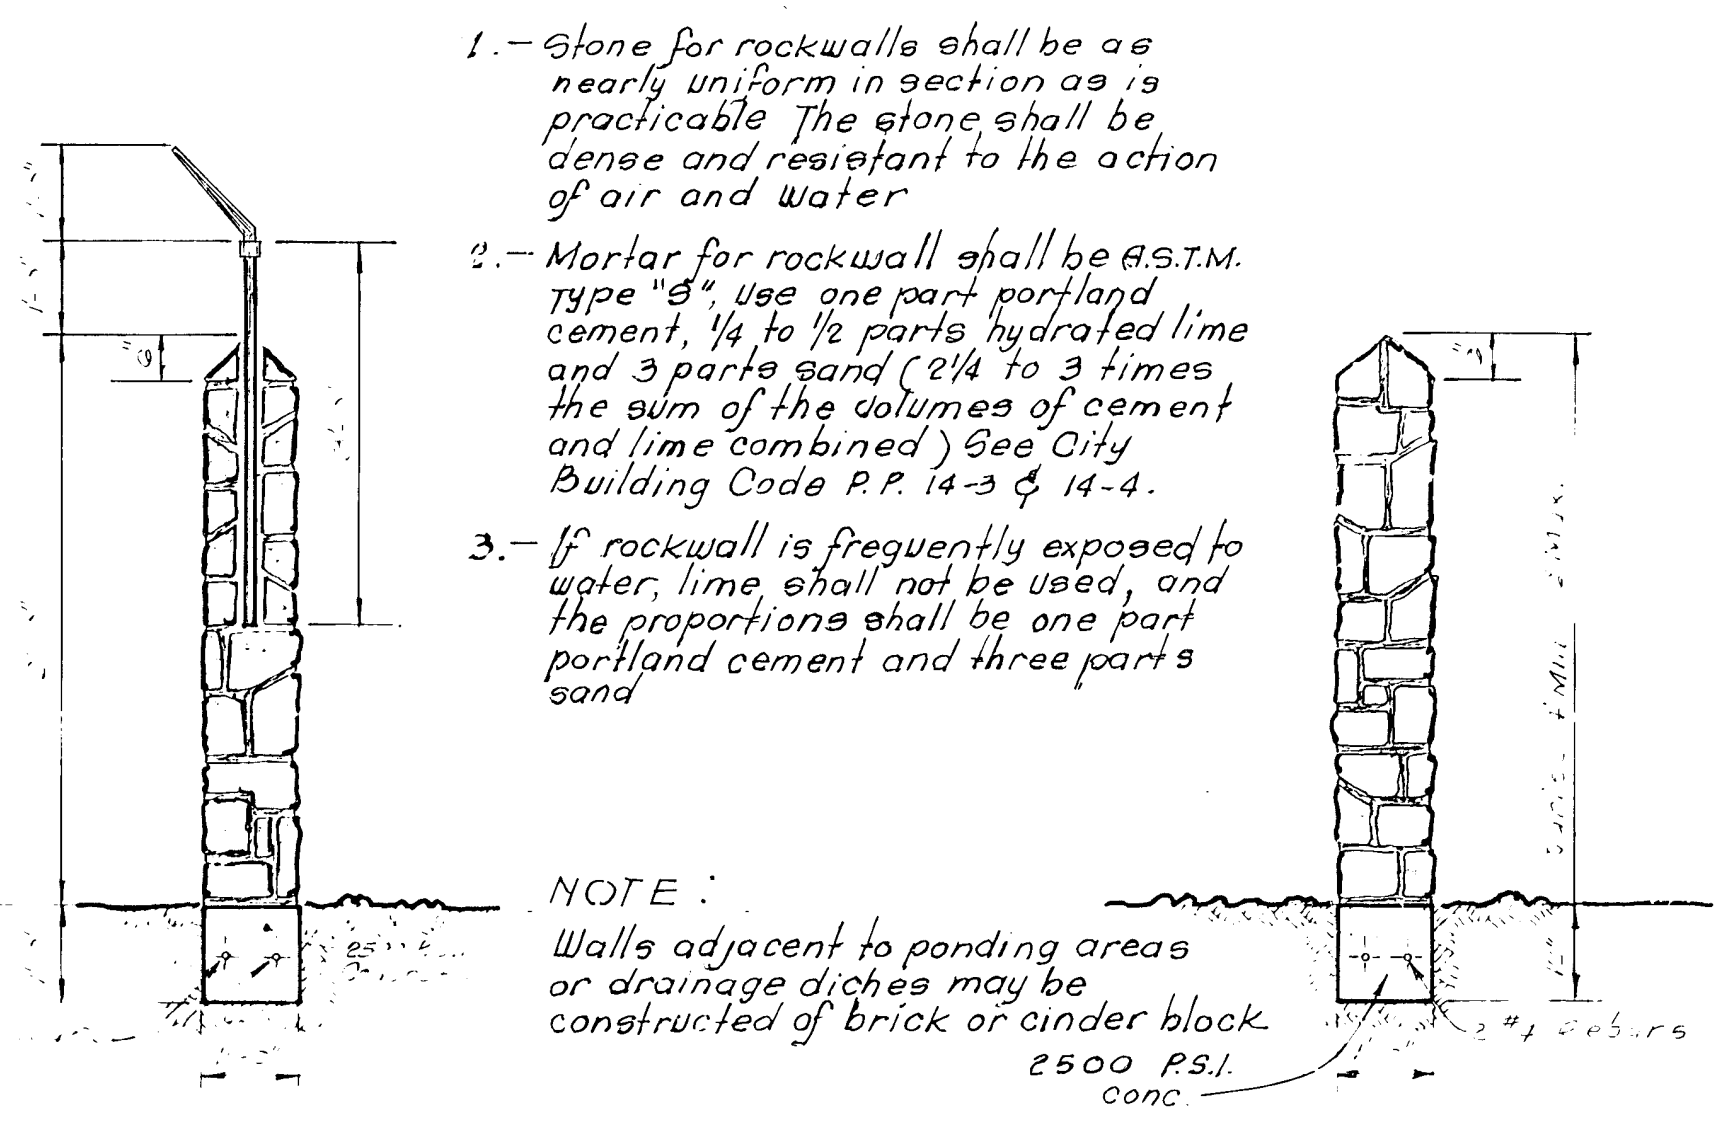 1.- Stone for rockwalls shall be as
nearly uniform in section as is
practicable The stone shall be
dense and resistant to the action
of air and water
2.- Mortar for rockwall shall be A.S.T.M.
Type "S", use one part portland
cement, 1/4 to 1/2 parts hydrated lime
and 3 parts sand (2 1/4 to 3 times
the sum of the volumes of cement
and lime combined) See City
Building Code P.P. 14-3 & 14-4.
3.- If rockwall is frequently exposed to
water, lime shall not be used, and
the proportions shall be one part
portland cement and three parts
sand
NOTE:
Walls adjacent to ponding areas
or drainage diches may be
constructed of brick or cinder block
2500 P.S.I.
conc.
6"